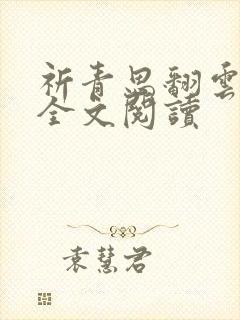 祈青思翻雲
全文閱讀
袁慧君